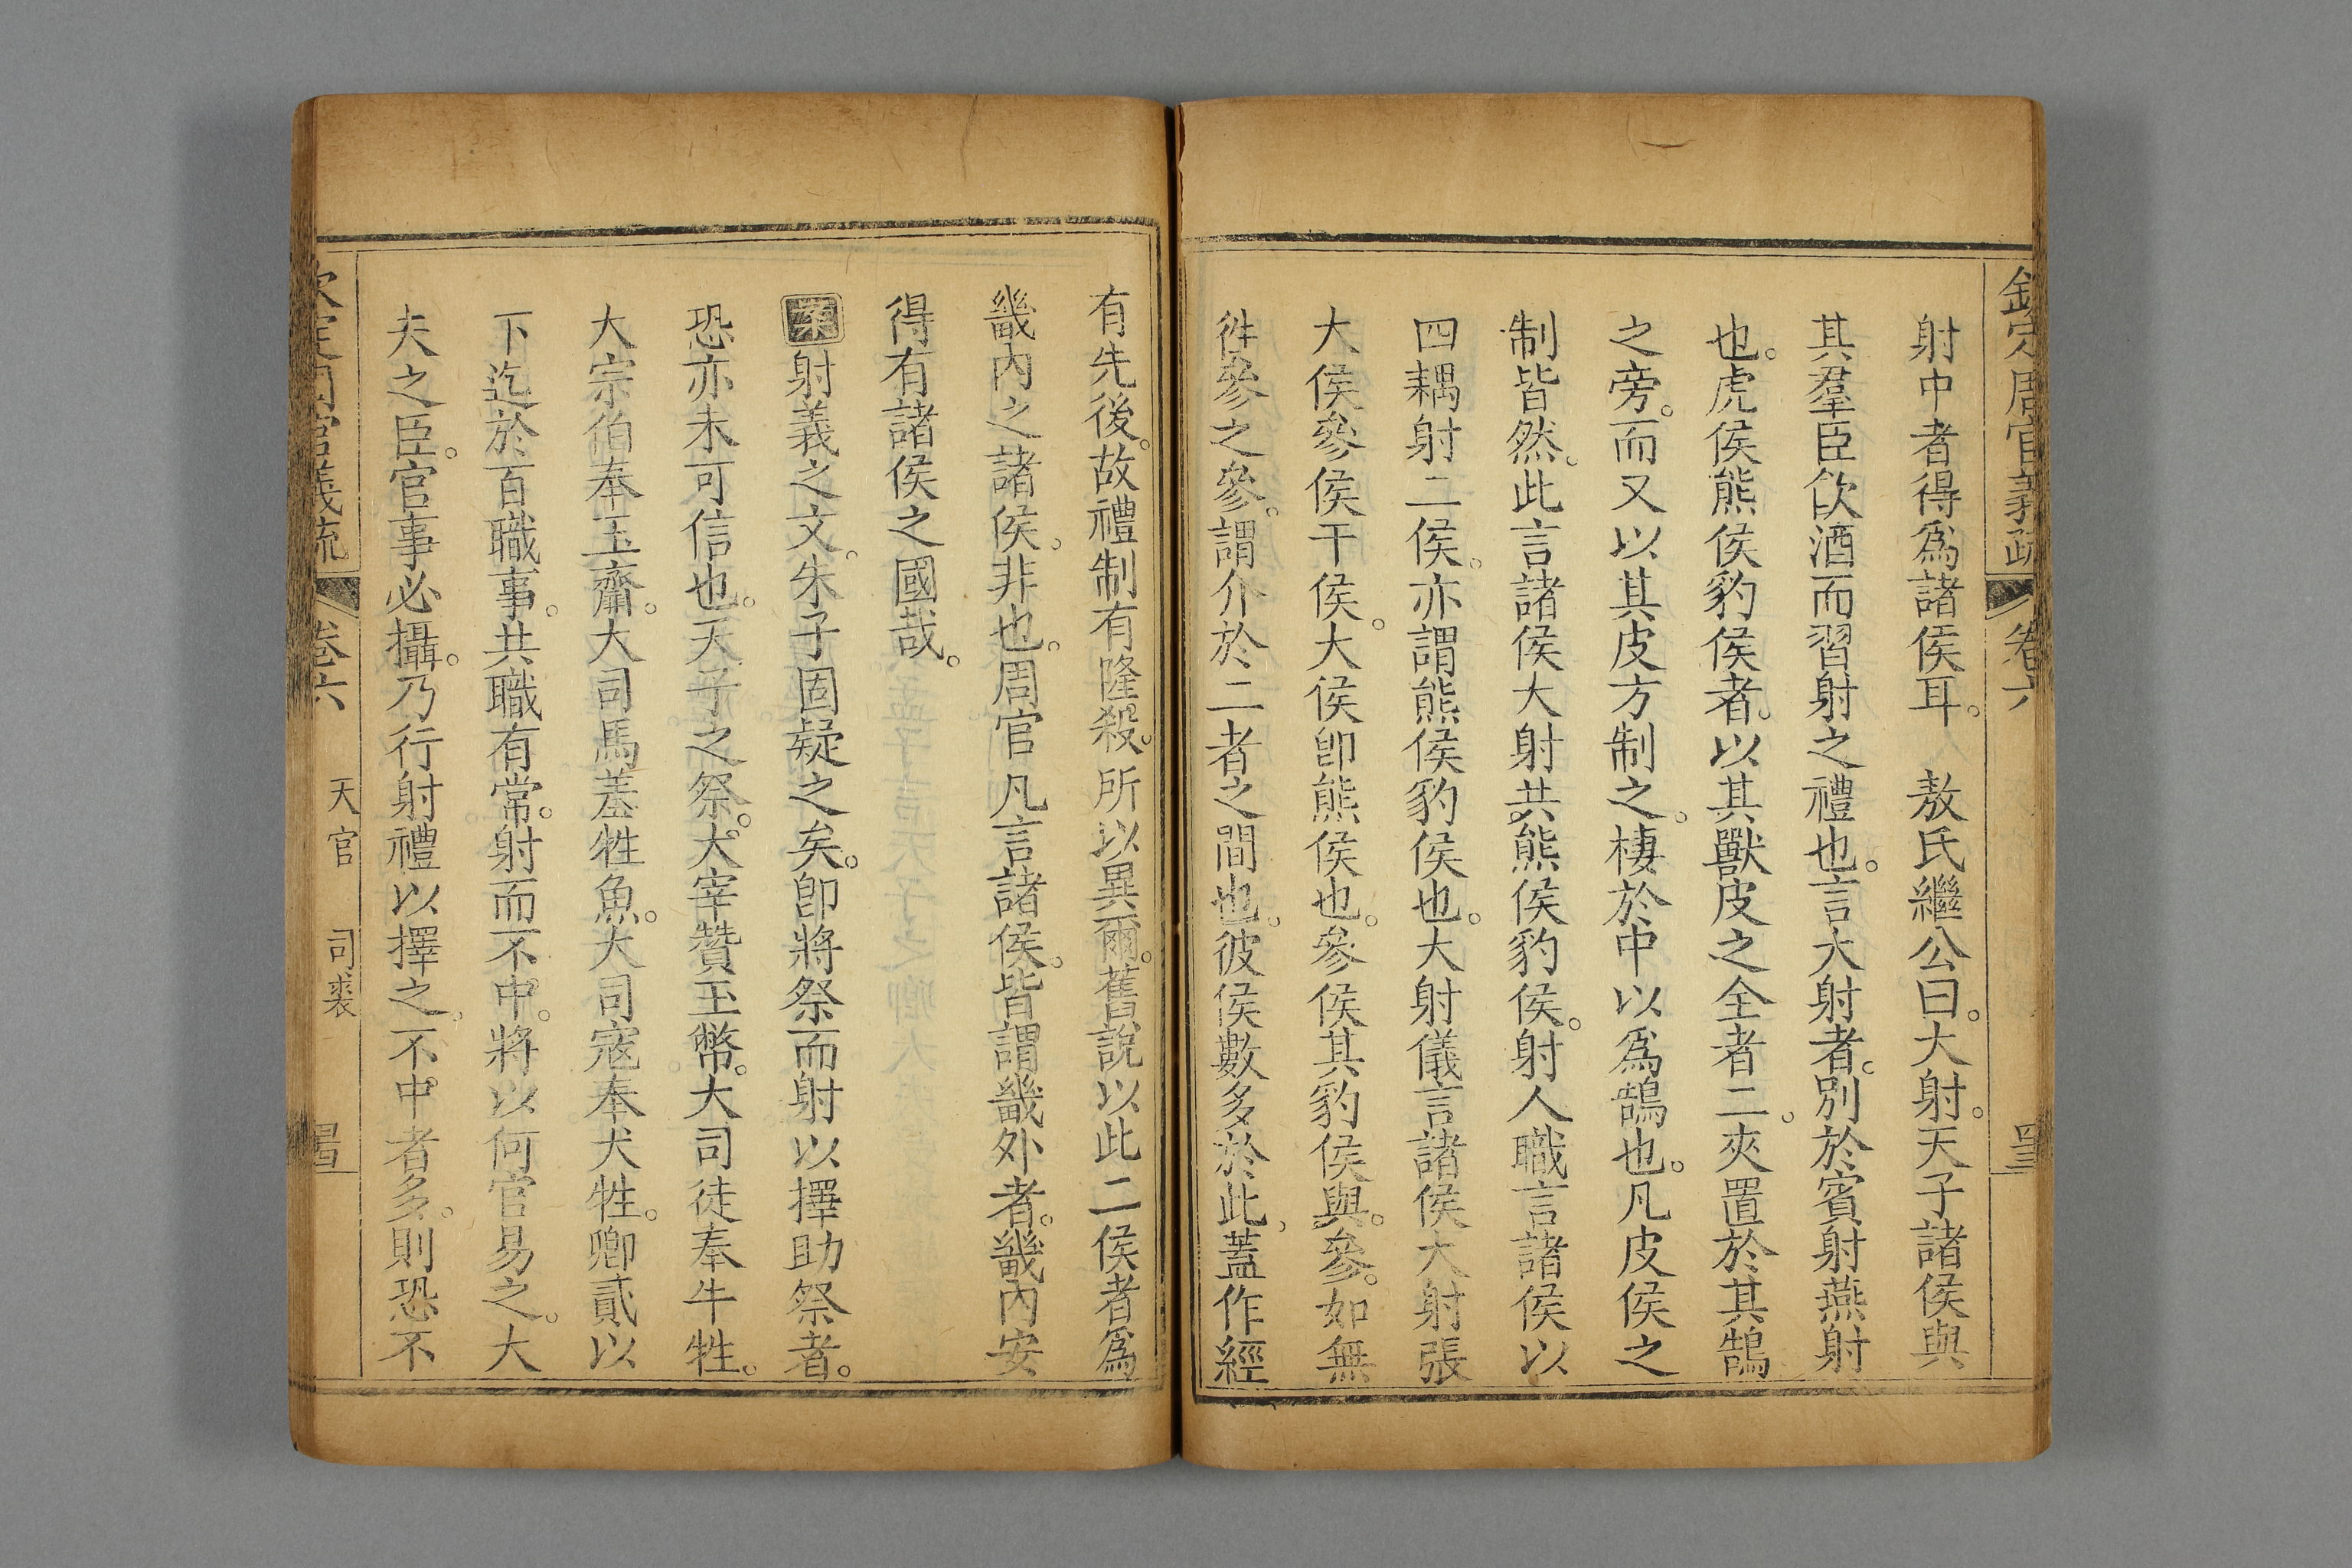 欽定周官義疏 卷六 四三
射中者得爲諸侯耳。 敖氏繼公曰。大射。天子諸侯與
其羣臣飮酒而習射之禮也。言大射者。別於賓射燕射
也。虎侯熊侯豹侯者。以其獸皮之全者二。夾置於其鵠
之旁。而又以其皮方制之。棲於中以爲鵠也。凡皮侯之
制皆然。此言諸侯大射共熊侯豹侯。射人職言諸侯以
四耦射二侯。亦謂熊侯豹侯也。大射儀言諸侯大射張
大侯參侯干侯。大侯卽熊侯也。參侯其豹侯與。參。如無
徃參之參。謂介於二者之間也。彼侯數多於此。蓋作經
有先後。故禮制有隆殺。所以異爾。舊說以此二侯者爲
畿內之諸侯。非也。周官凡言諸侯。皆謂畿外者。畿內安
得有諸侯之國哉。
案射義之文。朱子固疑之矣。卽將祭而射以擇助祭者。
恐亦未可信也。天子之祭。大宰贊玉幣。大司徒奉牛牲。
大宗伯奉玉齍。大司馬羞牲魚。大司寇奉犬牲。卿貳以
下迄於百職事。共職有常。射而不中。將以何官易之。大
夫之臣。官事必攝。乃行射禮以擇之。不中者多。則恐不
欽定周官義疏 卷六 天官 司裘